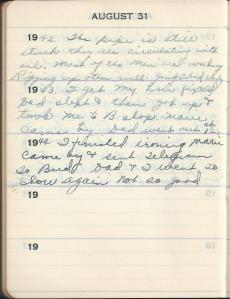 AUGUST 31
1942 The pipe is still
stuck they are circulating with
oil. Most of the men are working
Rigging up other well.
1943. I got my hair fixed
Dad slept & then got up &
took me to B. shop. Marie
came by. Dad went out at
1944 I finished ironing Marie
came by & sent telegram
to Bud. Dad & I went to
show again not so good
19
19